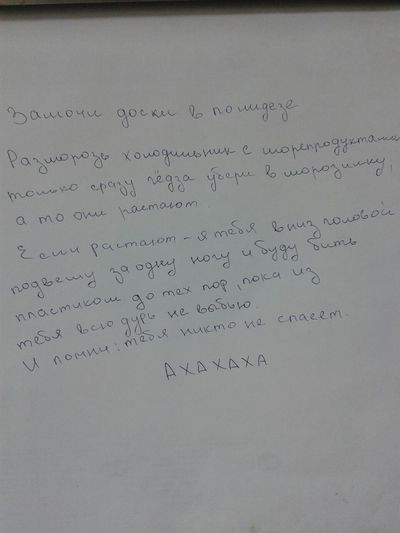 Замочи доски в полидезе
Разморозь холодильник с морепродуктами
только сразу гёдза убери в морозилку,
а то они растают.
Если растают - я тебя вниз головой
подвешу за одну ногу и буду бить
пластиком до тех пор, пока из
тебя всю дурь не выбью.
И помни: тебя никто не спасет.
АХАХАХА